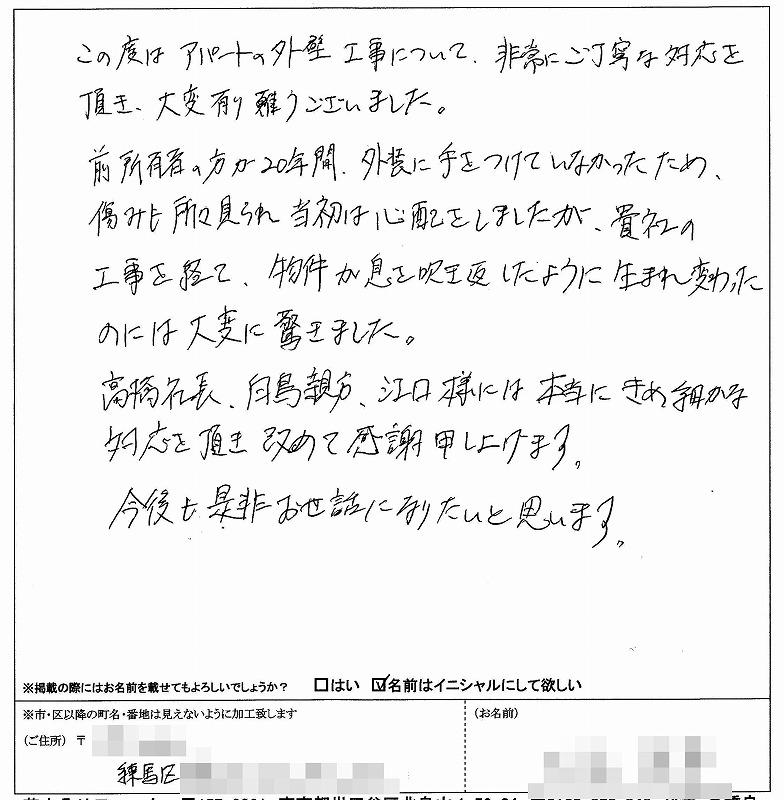 この度は アパートの外壁 工事について、非常にご丁寧な対応を
頂き、大変有り難うございました。
前所有者の方が20年間、外装に手をつけていなかったため、
傷みも所々見られ当初は心配をしましたが、貴社の
工事を経て、物件が息を吹き返したように生まれ変わった
のには大変に驚きました。
高橋社長、白鳥親方、江口様には本当にきめ細かな
対応を頂き改めて感謝申し上げます。
今後も是非お世話になりたいと思います。
※掲載の際にはお名前を載せてもよろしいでしょうか？ □はい ☑名前はイニシャルにして欲しい
※市・区以降の町名・番地は見えないように加工致します
(ご住所) 〒
(お名前)
練馬区